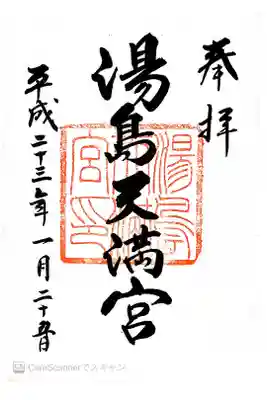 奉拝
湯島天満宮
平成二十三年一月二十五日
CamScannerでスキャン